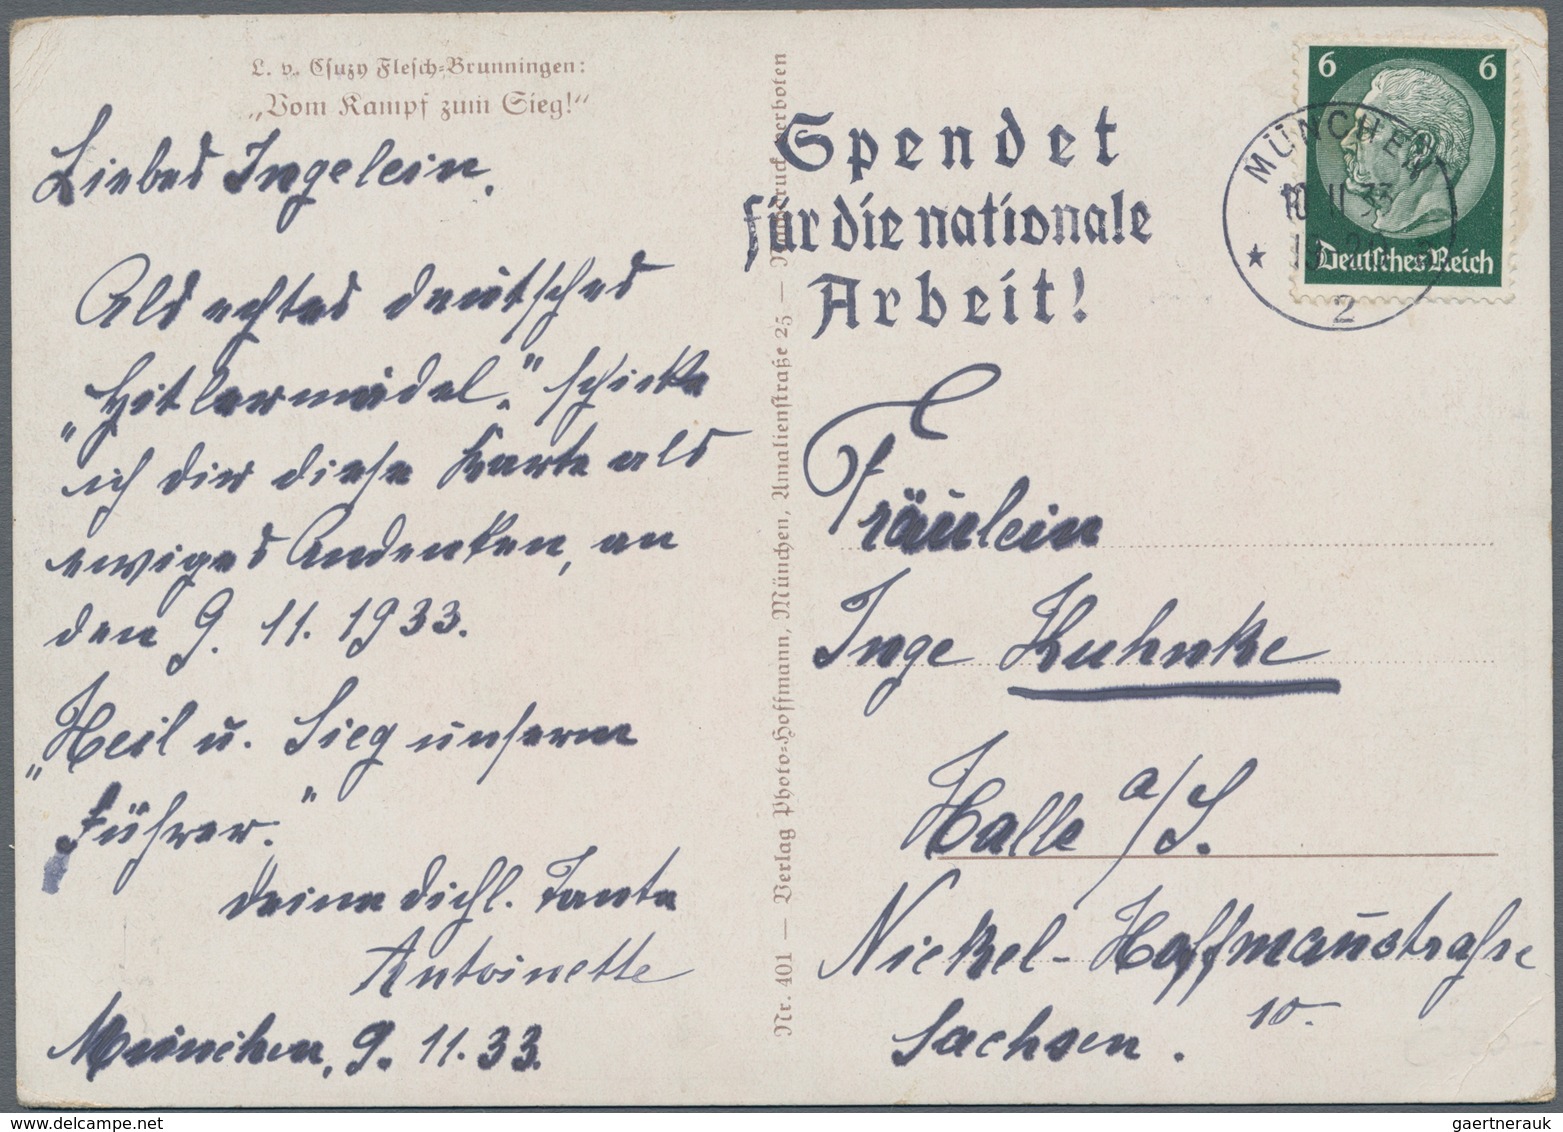 L. v. Csuzy Flesch-Brunningen:
„Vom Kampf zum Sieg!“
Liebes Ingelein,
Als echtes deutsches
„Hitlermädel“ schicke
ich dir diese Karte als
ewiges Andenken, an
den 9. 11. 1933.
„Heil u. Sieg unserm
Führer.“
deine dichl. Tante
Antoinette
München, 9. 11. 33.
Nr. 401 — Verlag Photo-Hoffmann, München, Amalienstraße 25 — Nachdruck verboten
Spendet
für die nationale
Arbeit!
6 6
Deutsches Reich
MÜNCHEN
10 11 33
2
Fräulein
Inge Kuhnke
Halle a/S.
Nickel-Hoffmannstraße
10.
Sachsen.
gaertnerauk